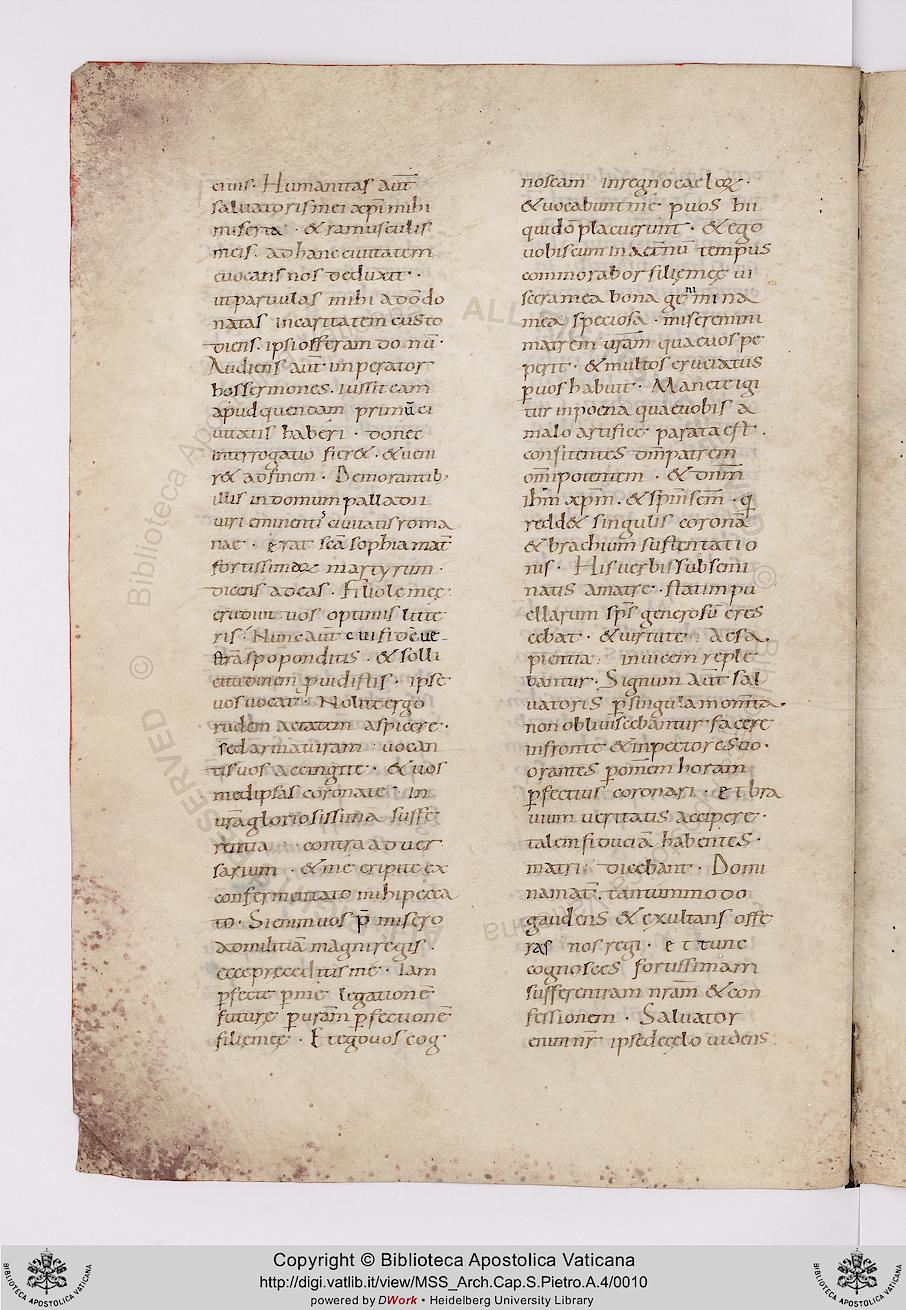 eius. Humanitas aut̄
saluatoris mei xp̄i mihi
miserta. & ramusculis
meis. ad hanc ciuitatem
euocans nos deduxit.
ut paruulas mihi a dō do
natas in caritatem custo
diens. ipsi offeram donū.
Audiens aut̄ imperator
hos sermones. iussit eam
apud quendam primū ci
uitatis haberi. donec
interrogatio fier&. & ueni
r& ad finem. Demorantib;
illis in domum palladii
uiri eminentis ciuitatis roma
nae. erat sc̄a sophia mat̄
fortissimarum martyrum.
dicens ad eas. Filiole meę
erudiui uos optimis litte
ris. Nunc aut̄
& solli
citudinem puidistis. ipse
uos uocat. Nolite ergo
rudem aetatem aspicere.
sed armaturam uocan
tis uos accingite. & uos
med ipsas coronate. In
ur̄a gloriosissima suffe
rentia contra aduer
sarium. & me eripite ex
confermentato mihi pecca
to. Sic enim uos p̄ misero
ad militiā magni regis.
ecce preceditis me. Iam
pfecte p me legationē
future p uram̄ pfectionē
filię meę. Et ego uos cog
noscam in regno caelorum.
& uocabunt me p uos hii
qui dō placuerunt. & ego
uobiscum in aet̄nū tempus
commorabor filię meę ui
scera mea bona
mea speciosa. miseremini
matrem uram̄ quae uos pe
perit. & multos cruciatus
p uos habuit. Manete igi
tur in poena quae uobis a
malo artifice parata est.
confitentes dm̄ patrem
om̄ipotentem. & dn̄m
ih̄m xp̄m. & sp̄m sc̄m. q
redd& singulis coronā
& brachium sustentatio
nis. His uerbis subsemi
natis a matre. statim pu
ellarum sp̄s generosus cres
cebat. & uirtute ac sa
pientia inuicem reple
bantur. Signum aut̄ sal
uatoris p singula momenta
non obliuiscebantur facere
in fronte & in pectore suo.
orantes p om̄em horam
pfectius coronari. et bra
uium ueritatis accipere.
talem fiduciā habentes.
matri dicebant. Domi
na mat̄. tantummodo
gaudens & exultans offe
ras nos regi. et tunc
cognosces fortissimam
sufferentiam nram̄ & con
fessionem. Saluator
enim nr̄ ipse de cęlo uidens
Copyright © Biblioteca Apostolica Vaticana
http://digi.vatlib.it/view/MSS_Arch.Cap.S.Pietro.A.4/0010
powered by DWork • Heidelberg University Library